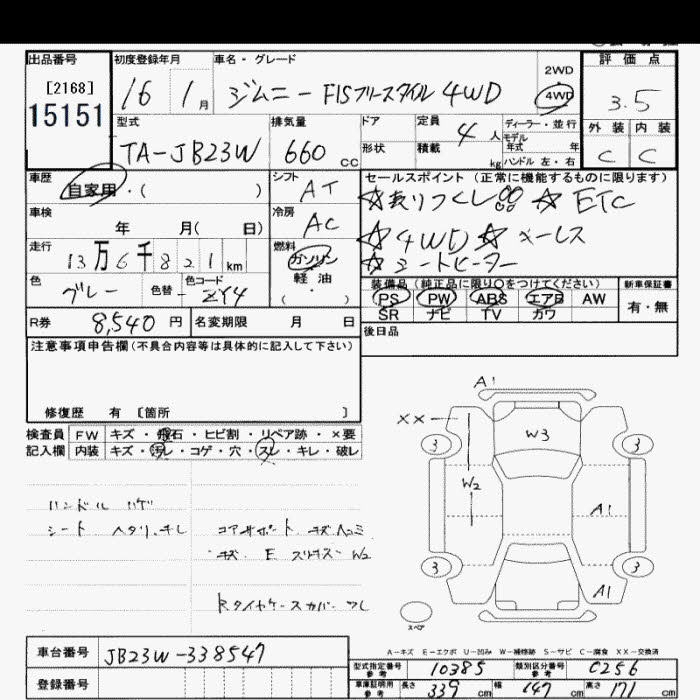 出品番号 初度登録年月 車名・グレード 評価点
[2168] 16 1月 ジムニー FISフリースタイル 4WD 2WD 4WD 3.5
15151
型式 排気量 ドア 定員 4人 ディーラー・並行 外装 内装
モデル年式 年
TA-JB23W 660cc 形状 積載 kg ハンドル 左・右 C C
車歴 自家用・( ) シフト AT セールスポイント (正常に機能するものに限ります)
☆ ☆ ETC
車検 年 月( 日) 冷房 AC ☆4WD☆
走行 13万6千821km 燃料 ガソリン ☆シートヒーター
色 グレー 色替 - 色コード ZY4 軽油 ( ) 装備品(純正品に限り○をつけてください) 新車保証書
PS PW ABS エアB AW 有・無
R券 8,540円 名変期限 月 日 SR ナビ TV カワ
注意事項申告欄(不具合内容等は具体的に記入して下さい) 後日品
修復歴 有 [箇所 ]
検査員 FW キズ・飛石・ヒビ割・リペア跡・×要
記入欄 内装 キズ・汚レ・コゲ・穴・スレ・キレ・破レ
A1
XX
W3
3 3
W2
A1
3 3
A1
スペア
ハンドル ハゲ
シート ヘタリ、キレ コアサポート キズ ヘコミ
キズ E W2
Rタイヤケースカバーナシ
A-キズ E-エクボ U-凹み W-補修跡 S-サビ C-腐食 XX-交換済
車台番号 JB23W-338547
型式指定番号 参考 10385 類別区分番号 参考 C256
登録番号 車庫証明用 参考 長さ 339cm 幅 147cm 高さ 171cm